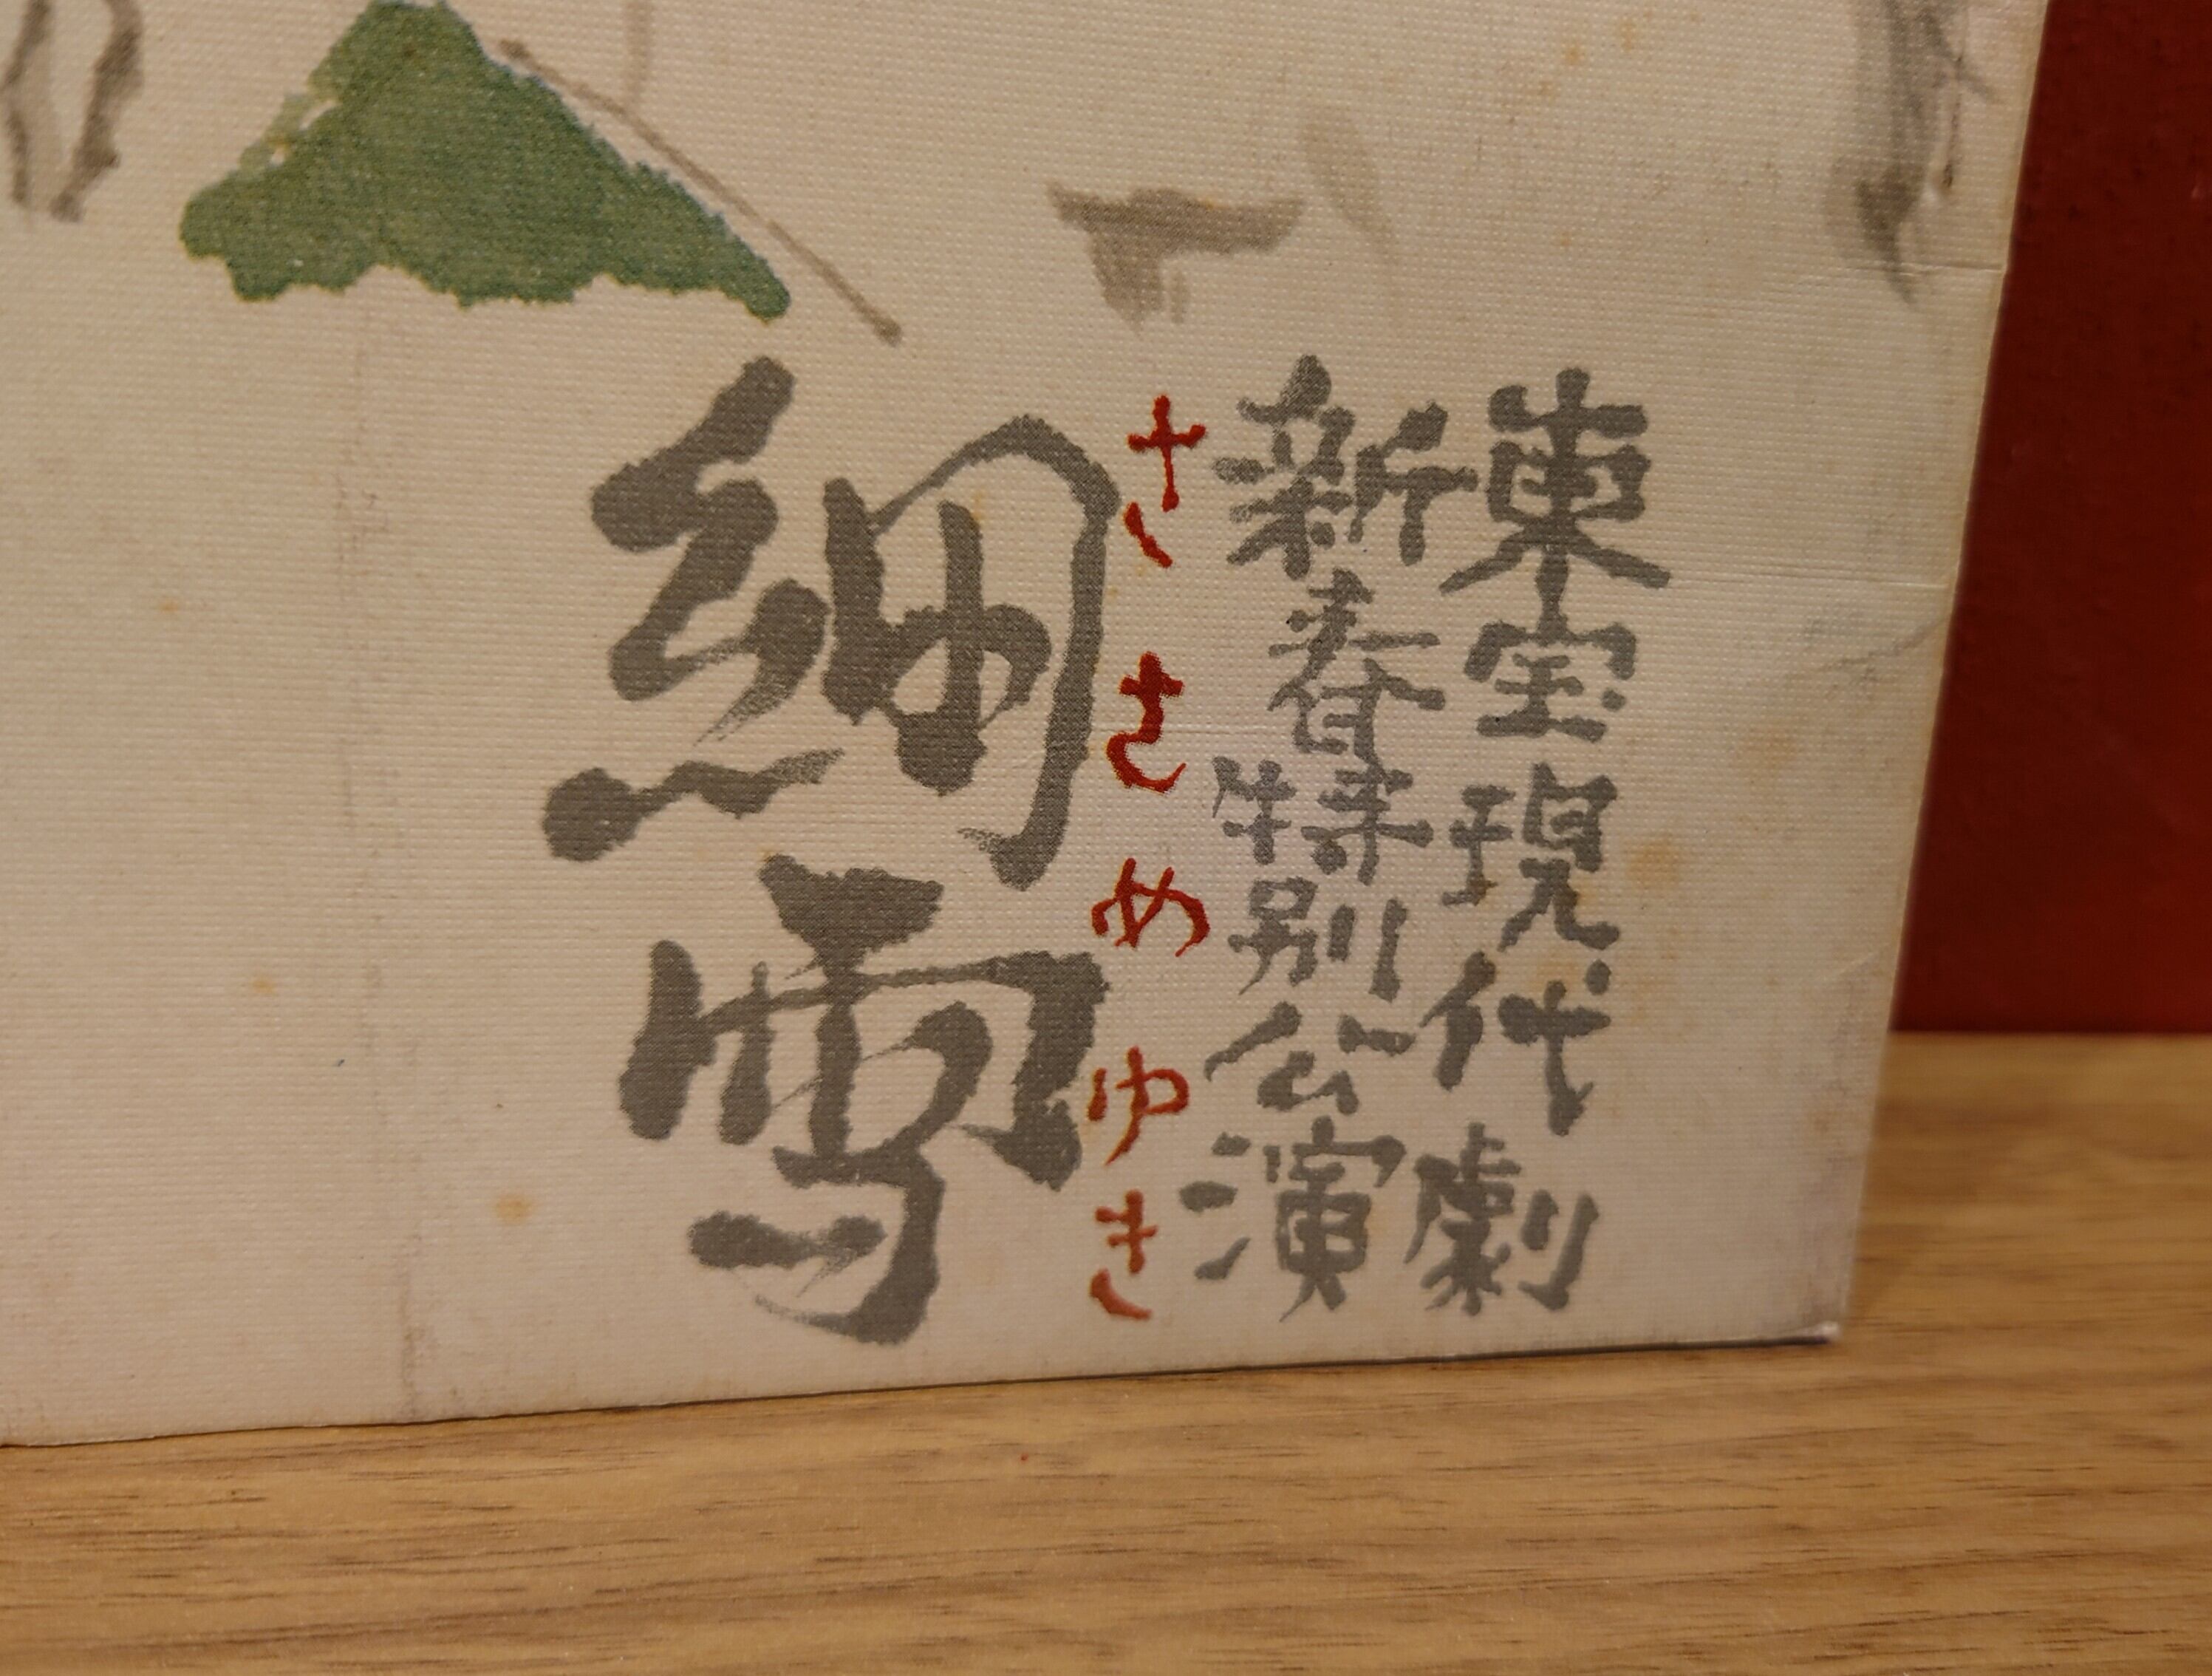 東宝現代劇
新春特別公演
さささめゆき
細雪